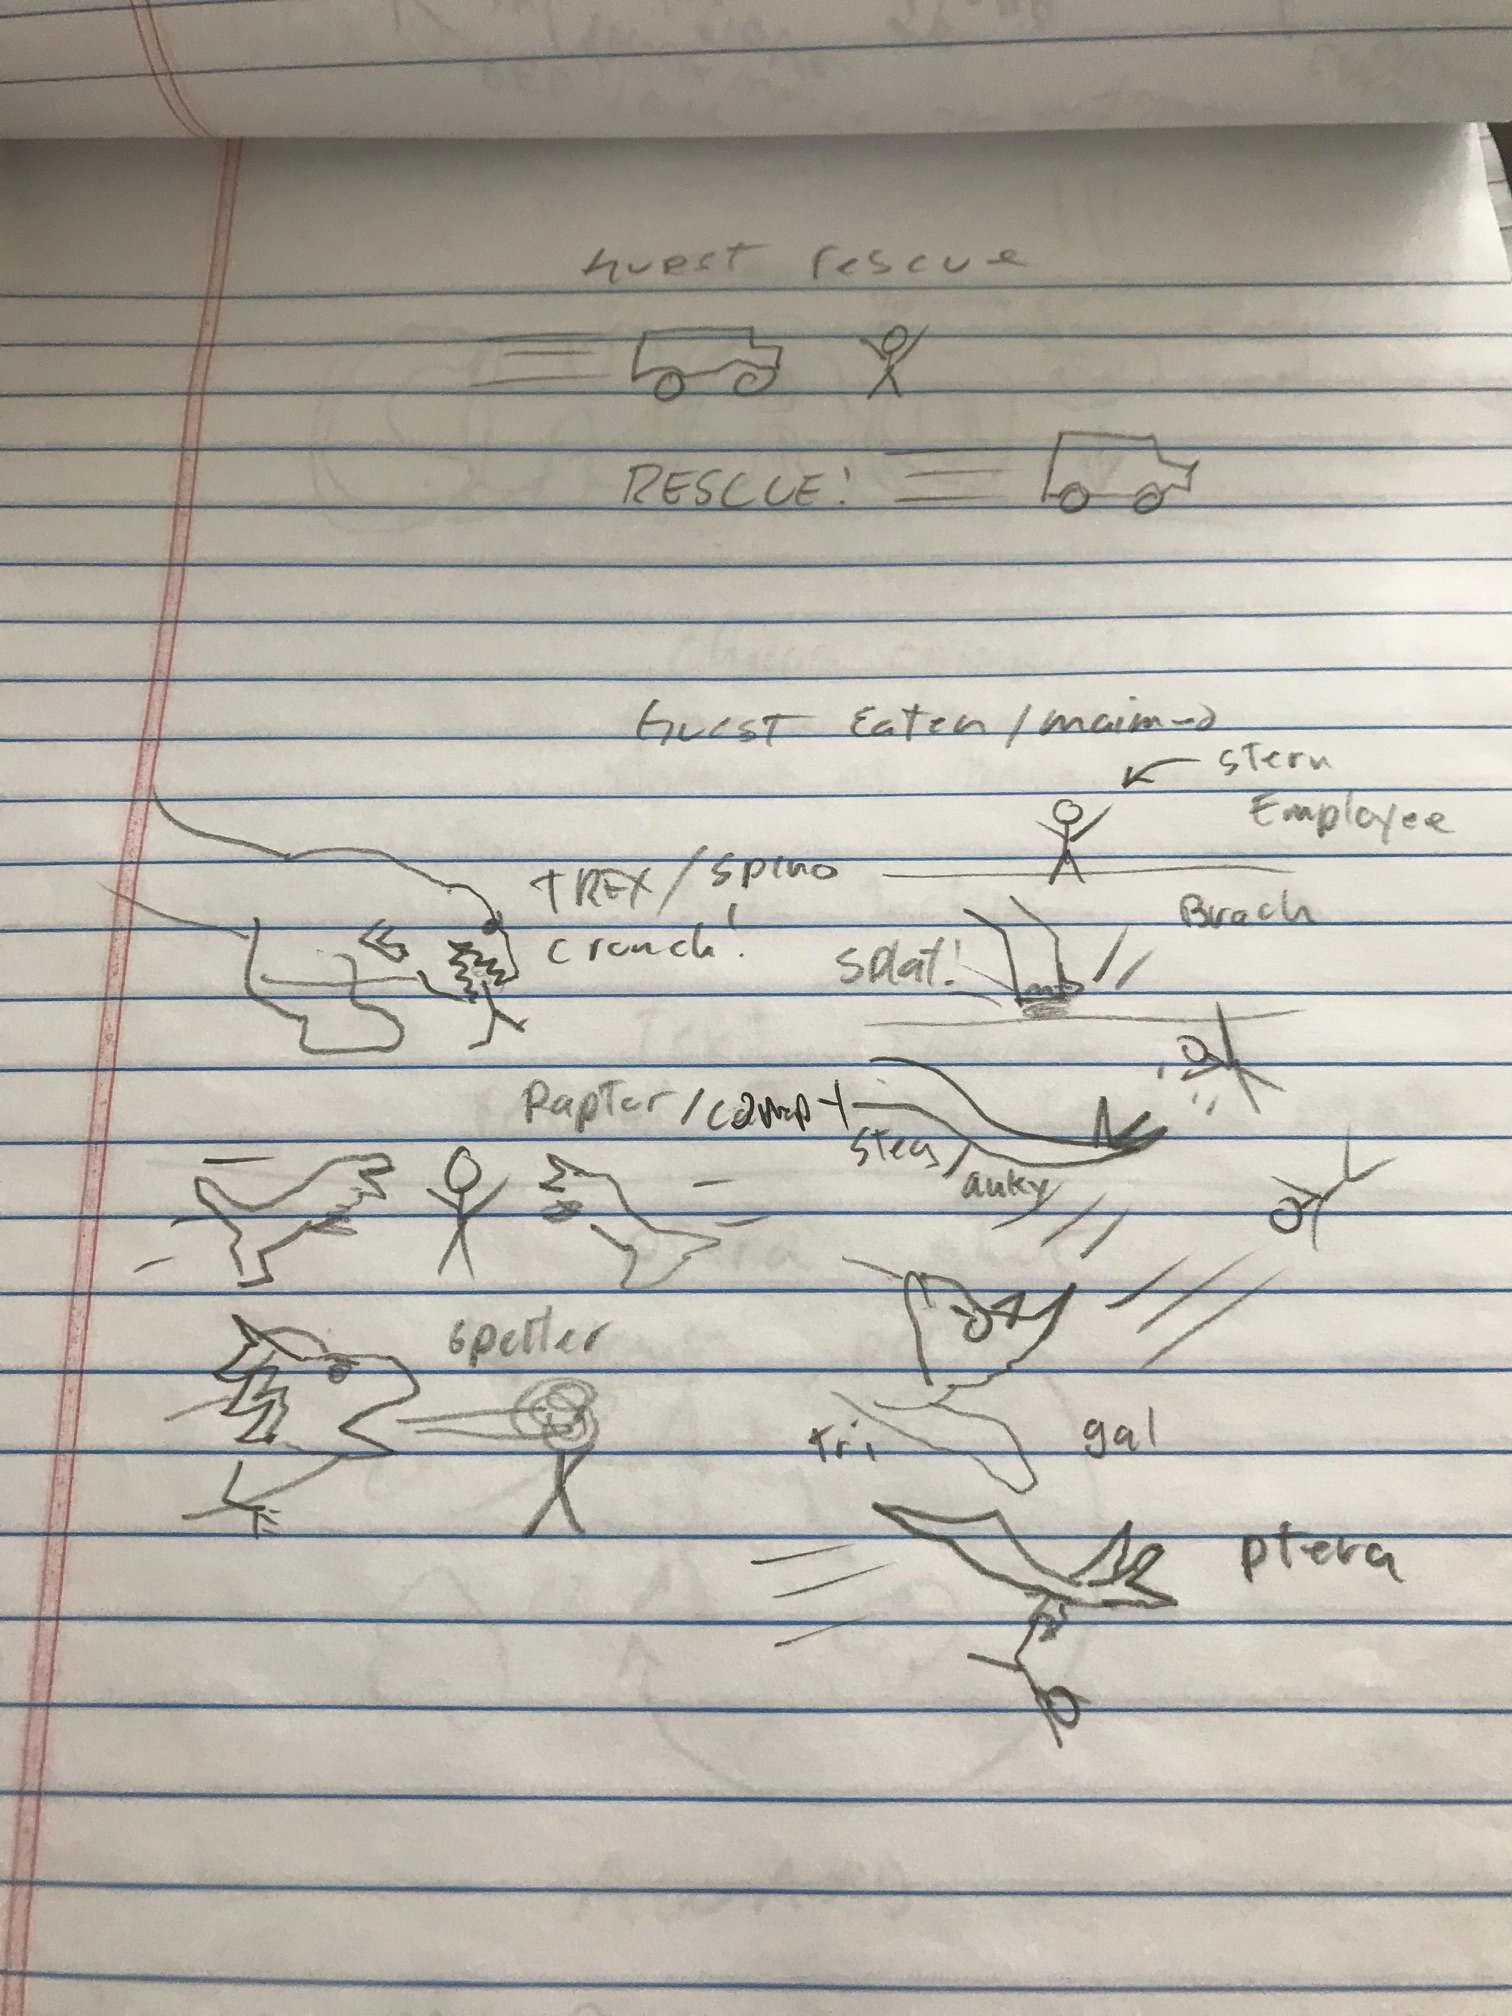 Guest rescue
RESCUE!
Guest Eaten/maimed
stern
Employee
TREX/Spino
crunch!
Brach
Splat!
Raptor/compy
Steg/
anky
Spitter
tri
gal
ptera